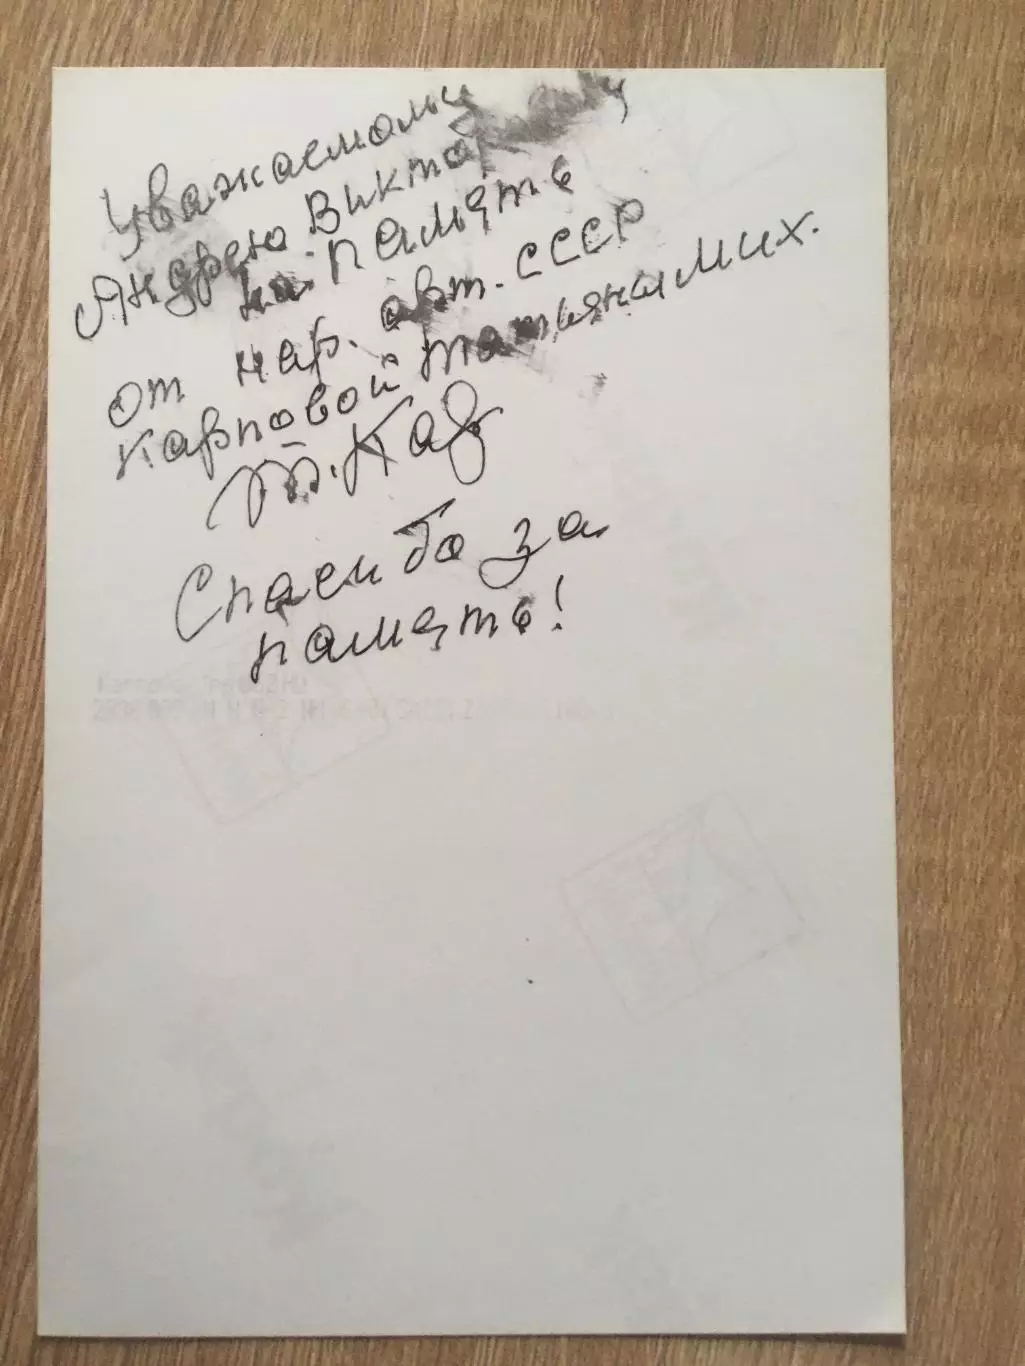 Уважаемому
Андрею Виктор
на память
от нар. арт. СССР
Карповой Татьяны Мих.
Т. Кар
Спасибо за
память!